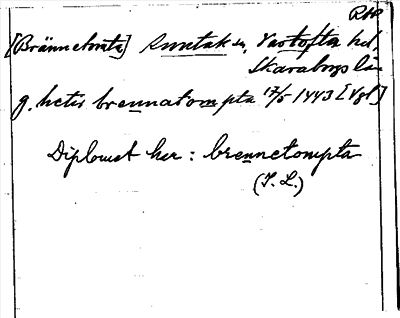 RAP
[Brännetomta] Acuntak sn, Vartofta hd,
Skaraborgs län
g. hetir brennatompta 17/5 1443 [Vgl]
Diplomet har: brennetompta
(I. L.)